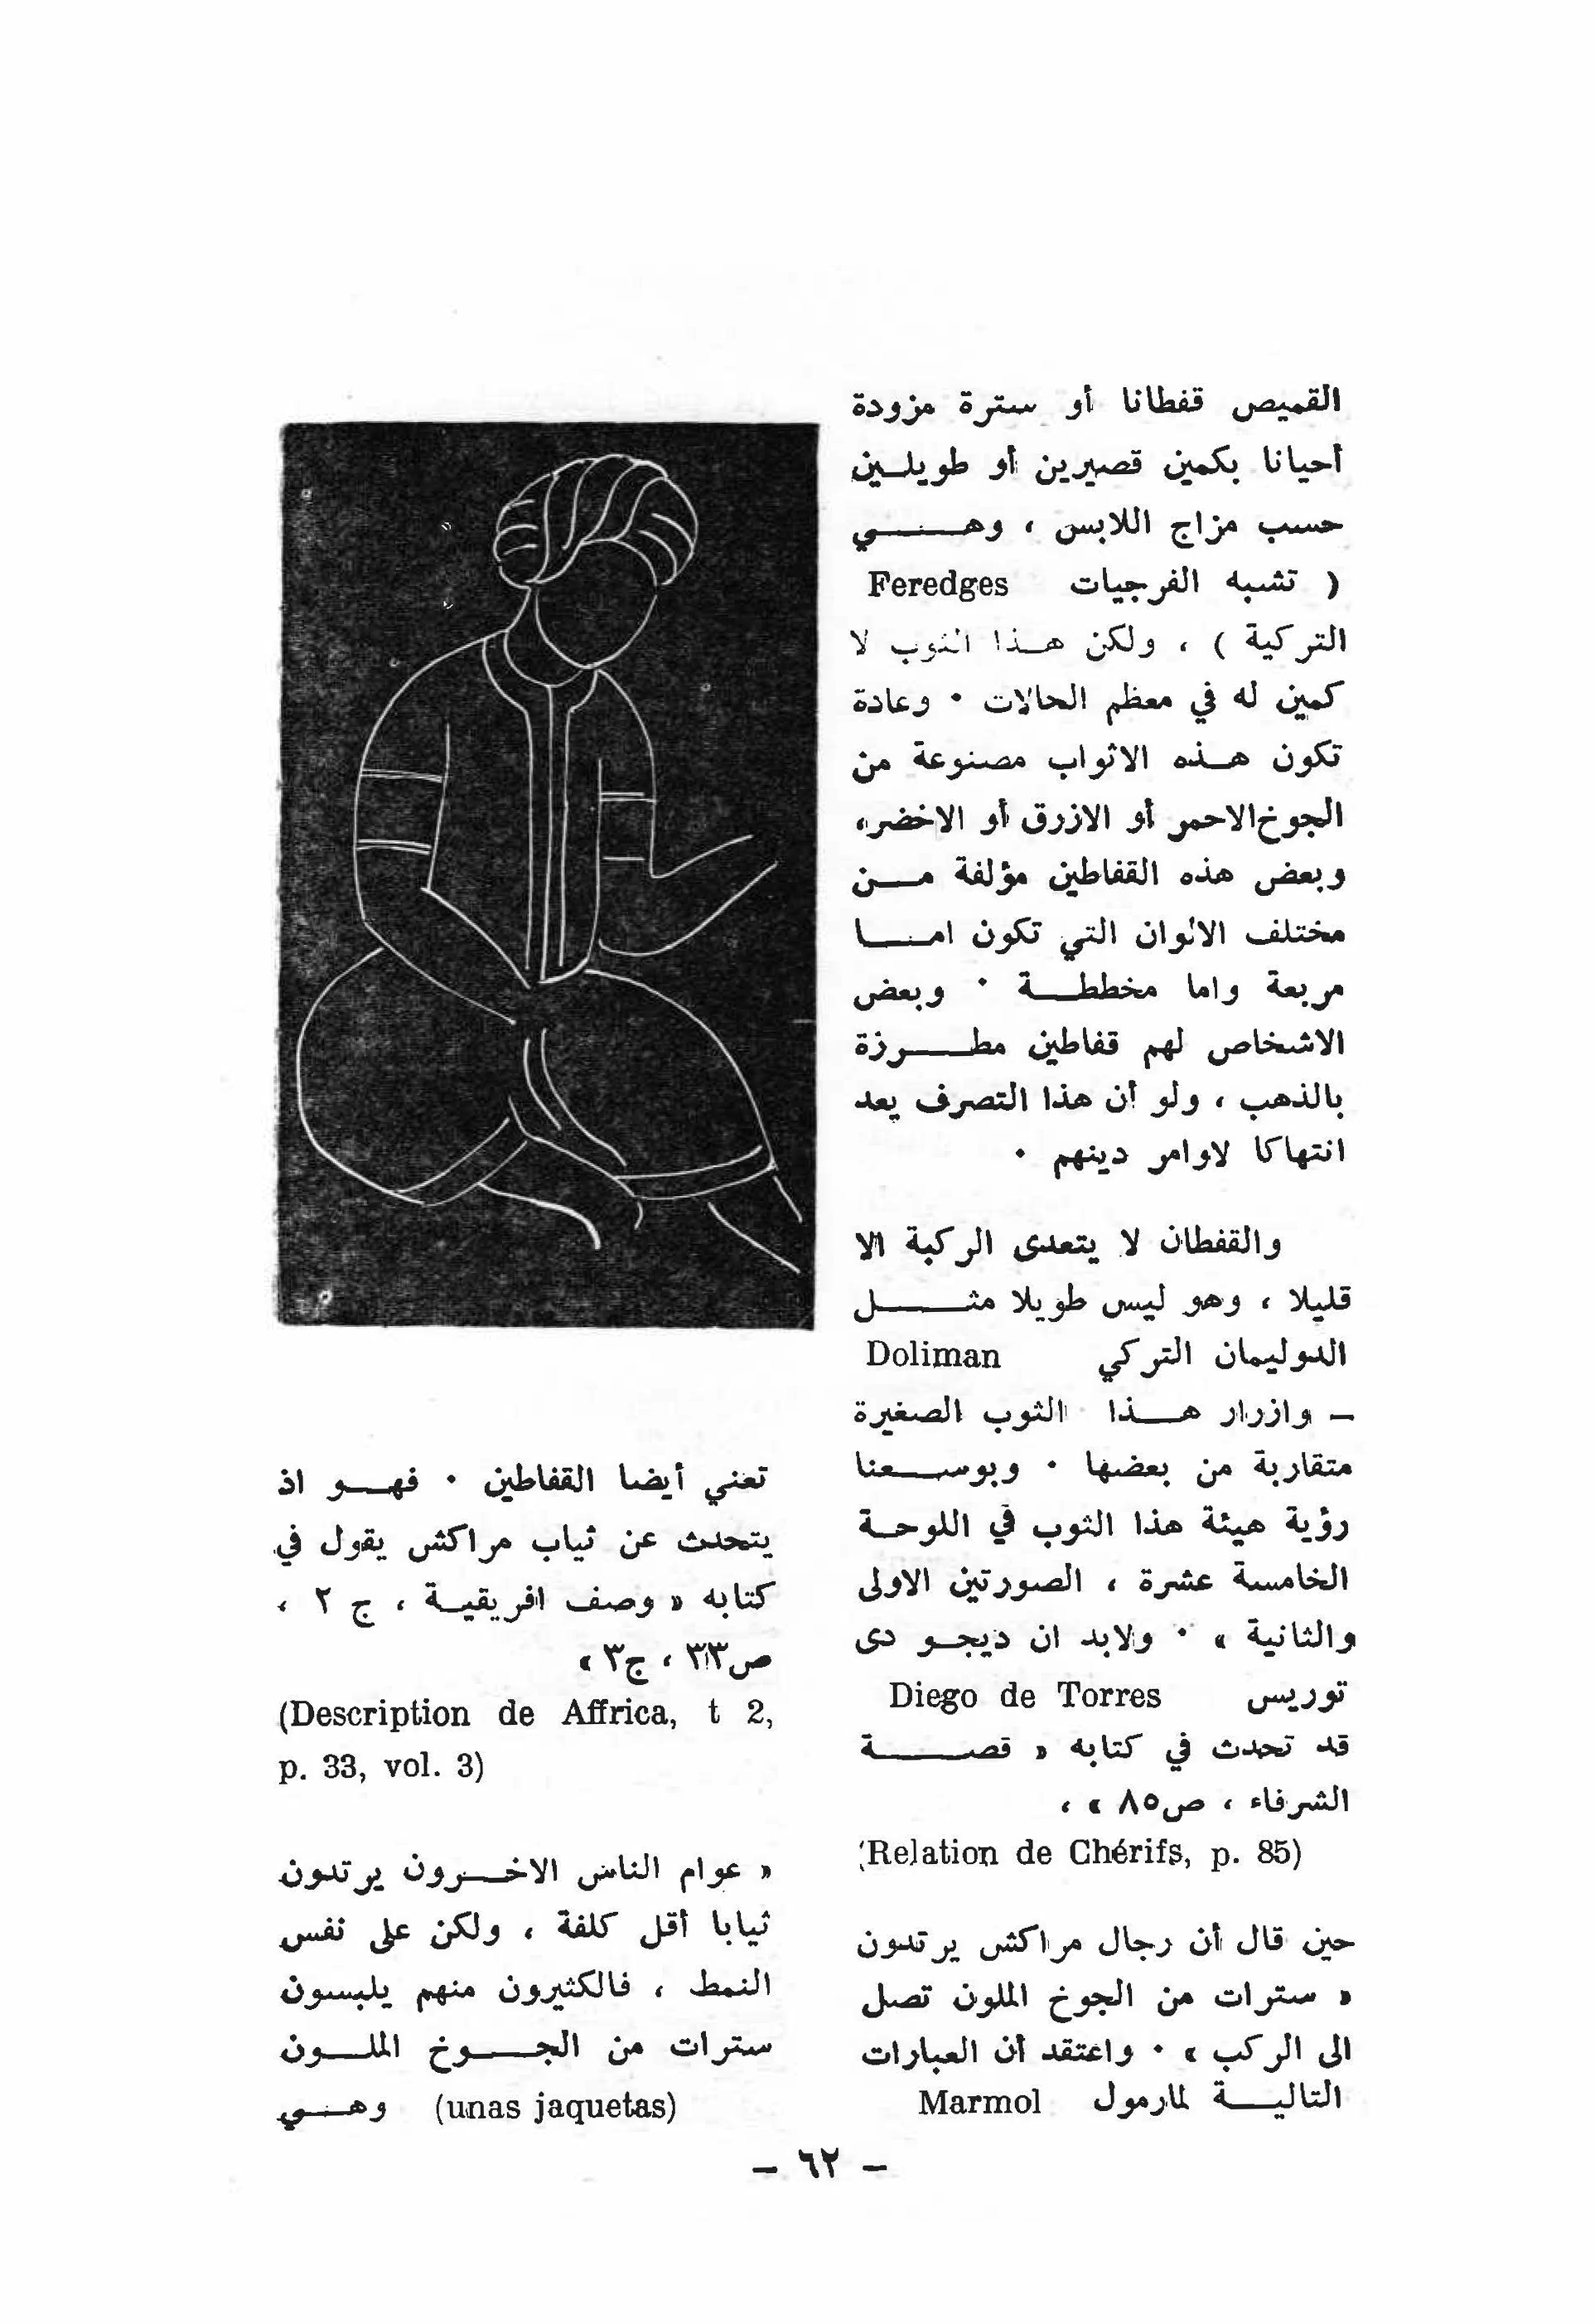 القميص قفطانا أو سترة مزودة
أحيانا بكمين قصيرين أو طويلين
حسب مزاج اللابس ، وهي
( تشبه الفرجيات Feredges
التركية ) ، ولكن هذا الثوب لا
كمين له في معظم الحالات · وعادة
تكون هذه الاثواب مصنوعة من
الجوخ الاحمر أو الازرق أو الاخضر،
وبعض هذه القفاطين مؤلفة من
مختلف الالوان التي تكون اما
مربعة واما مخططة · وبعض
الاشخاص لهم قفاطين مطرزة
بالذهب ، ولو أن هذا التصرف يعد
انتهاكا لاوامر دينهم ·
والقفطان لا يتعدى الركبة الا
قليلا ، وهو ليس طويلا مثل
الدوليمان التركي Doliman
– وازرار هذا الثوب الصغيرة
متقاربة من بعضها · وبوسعنا
رؤية هيئة هذا الثوب في اللوحة
الخامسة عشرة ، الصورتين الاولى
والثانية » · ولابد ان ديجو دى
توريس Diego de Torres
قد تحدث في كتابه « قصة
الشرفاء ، ص٨٥ » ،
(Relation de Chérifs, p. 85)
حين قال أن رجال مراكش يرتدون
« سترات من الجوخ الملون تصل
الى الركب » · واعتقد أن العبارات
التالية لمارمول Marmol
تعني أيضا القفاطين · فهو اذ
يتحدث عن ثياب مراكش يقول في
كتابه « وصف افريقية ، ج ٢ ،
ص٣٣ ، ج٣ »
(Description de Affrica, t 2,
p. 33, vol. 3)
« عوام الناس الاخرون يرتدون
ثيابا أقل كلفة ، ولكن على نفس
النمط ، فالكثيرون منهم يلبسون
سترات من الجوخ الملون
(unas jaquetas) وهي
– ٦٢ –